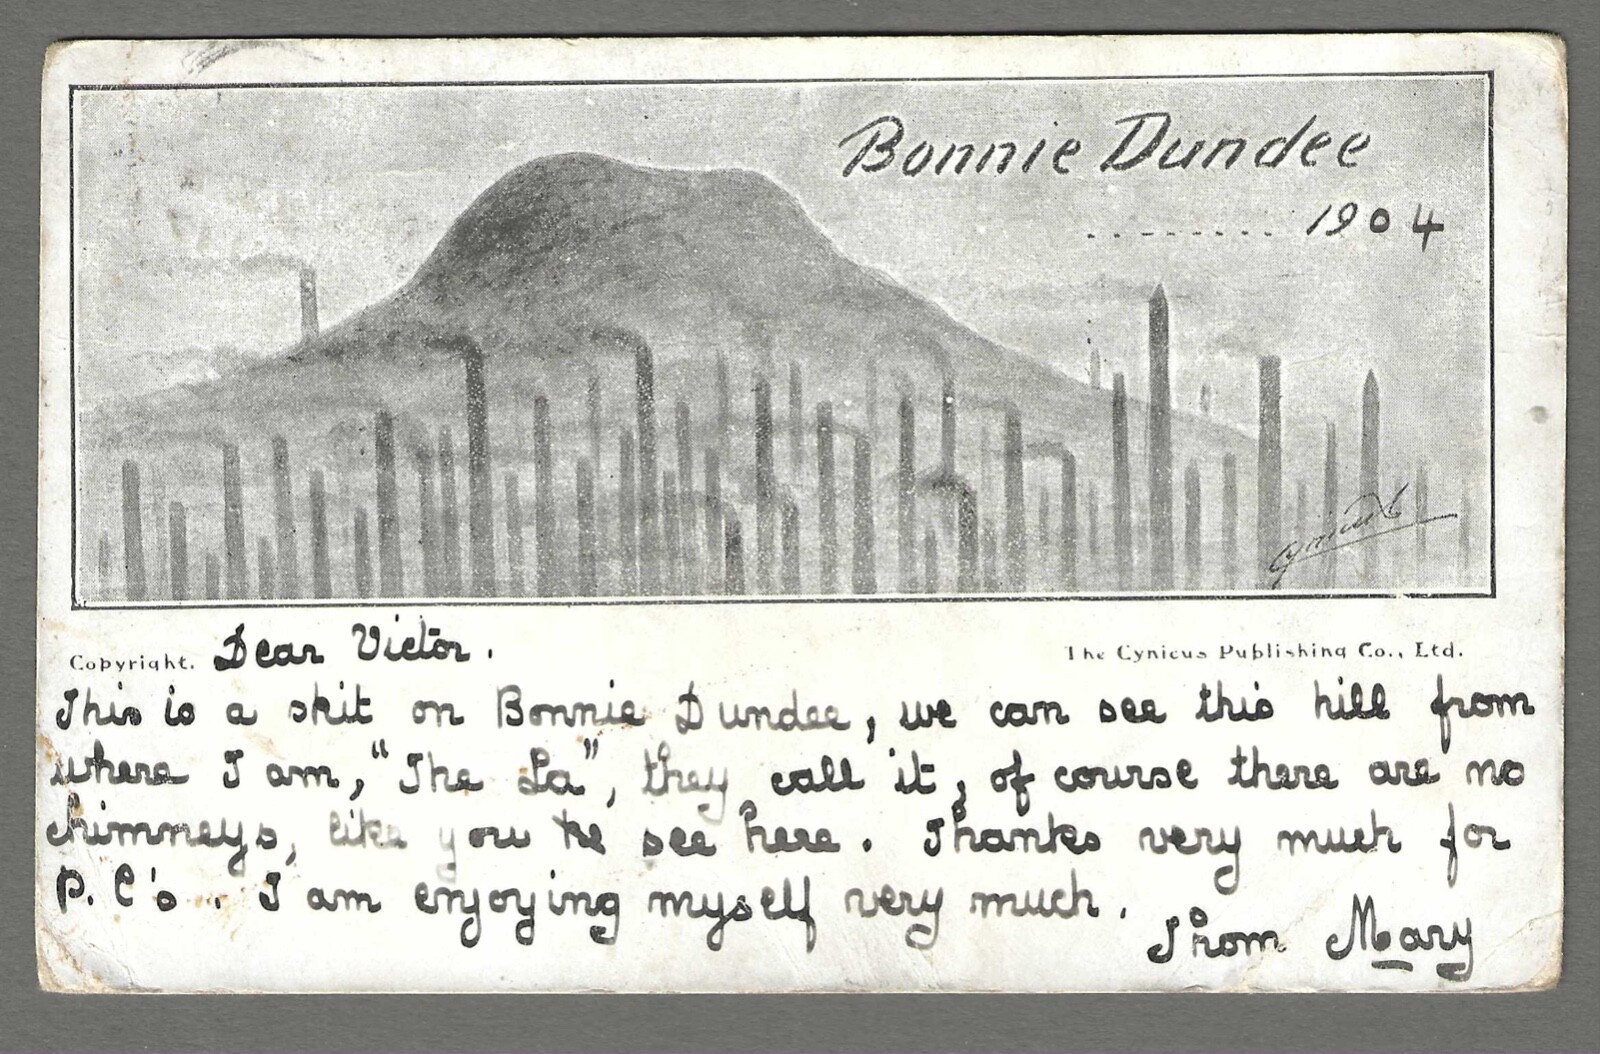 Bonnie Dundee
........ 1904
Cynicus
Copyright. Dear Victor.
The Cynicus Publishing Co., Ltd.
This is a skit on Bonnie Dundee, we can see this hill from
where I am, "The La", they call it, of course there are no
chimneys, like you see here. Thanks very much for
P.C's.. I am enjoying myself very much.
From Mary